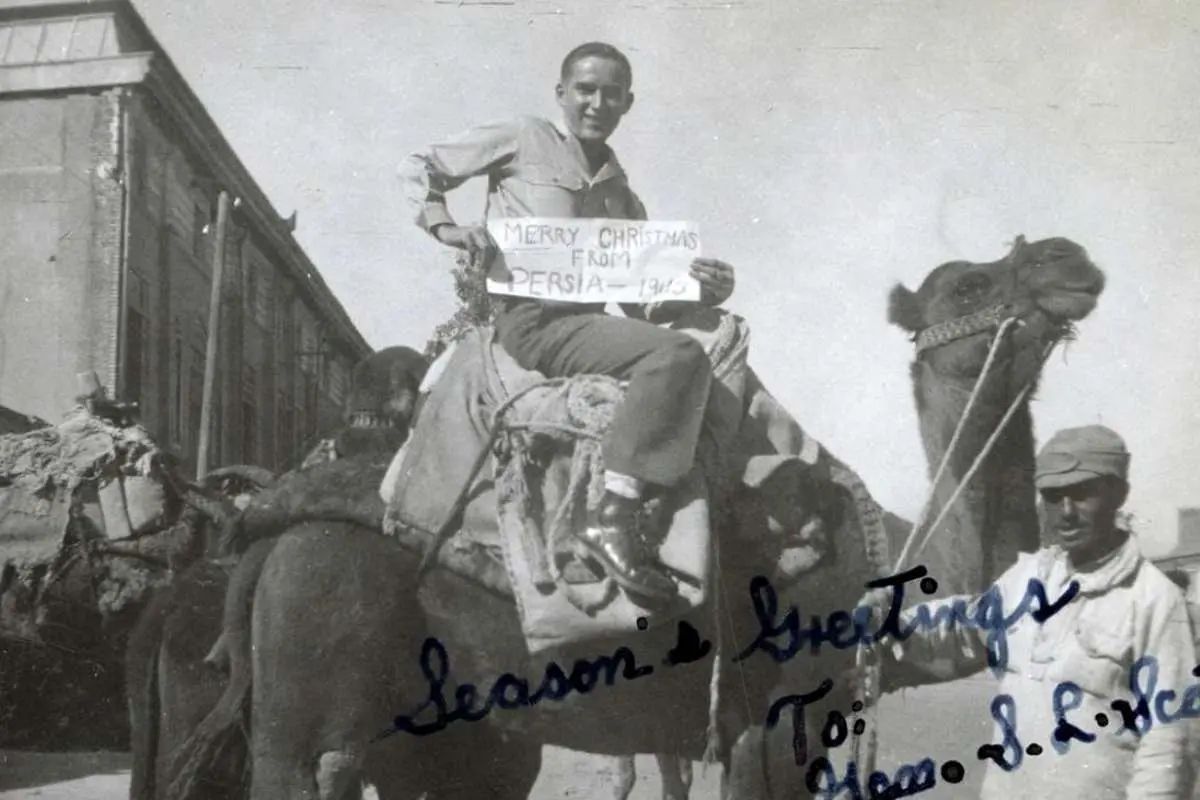 MERRY CHRISTMAS
FROM
PERSIA — 1943
Season's Greetings
To:
S. L.